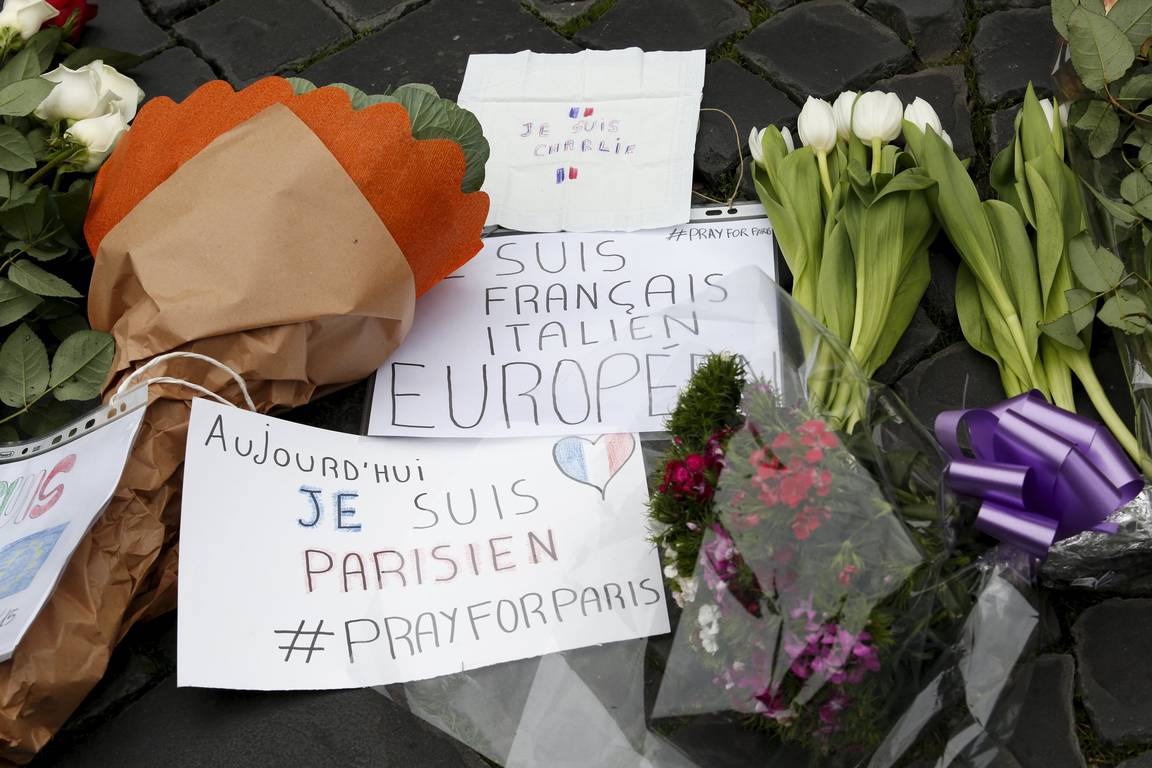 JE SUIS
CHARLIE
#PRAY FOR PARIS
SUIS
FRANÇAIS
ITALIEN
EUROPÉEN
AUJOURD'HUI
JE SUIS
PARISIEN
#PRAYFORPARIS
UIS